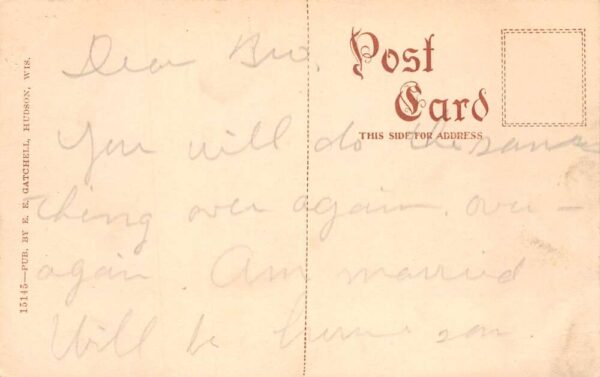 15145—PUB. BY E. E. GATCHELL, HUDSON, WIS.
Post
Card
THIS SIDE FOR ADDRESS
Dear Bro.
You will do the same
thing over again. over
again. Am married
Will be home son.